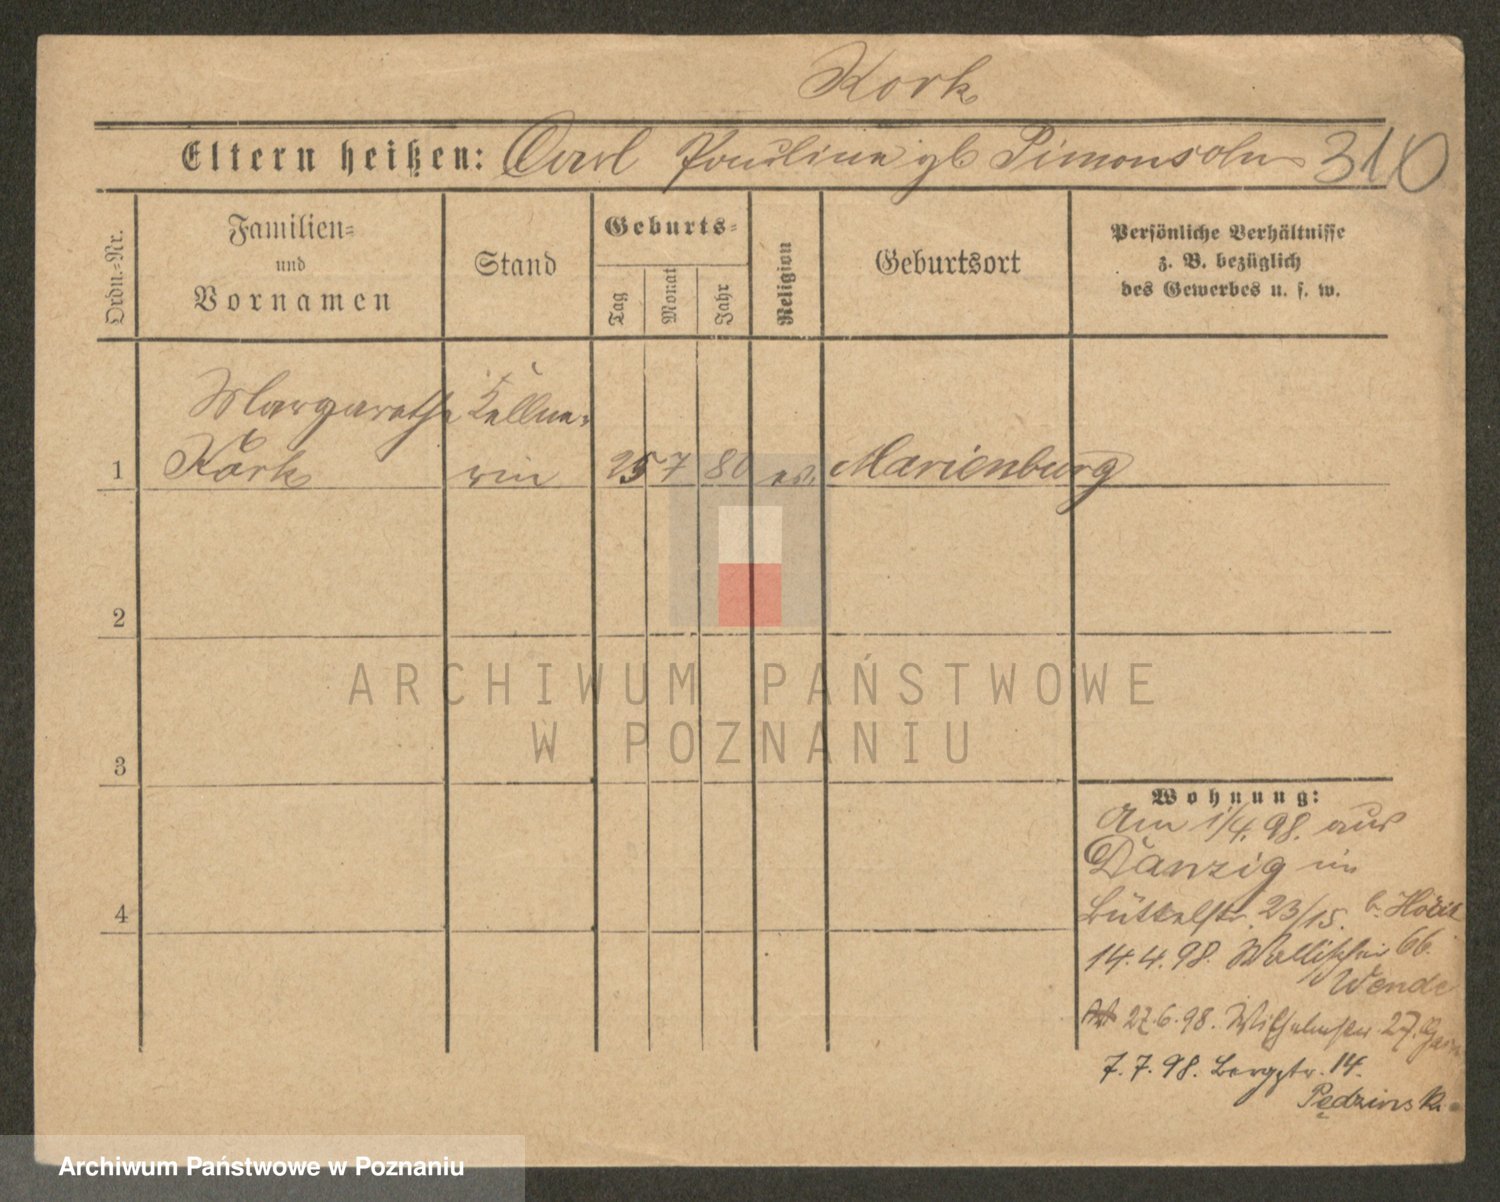 Kork
Eltern heißen: Carl Pauline gb Simonsohn 310
Ordn.-Nr.
Familien-
und
Vornamen
Stand
Geburts-
Tag
Monat
Jahr
Religion
Geburtsort
Persönliche Verhältnisse
z. B. bezüglich
des Gewerbes u. s. w.
Margarethe Kellne-
1 Kork rin 25 7 80 ev. Marienburg
2
3
4
ARCHIWUM PAŃSTWOWE
W POZNANIU
Wohnung:
Am 1/4. 98. aus
Danzig in
Büttelstr. 23/15. b.
14.4.98. Wallischei 66.
Wende
27.6.98. Wilhelmstr. 27.
7.7.98. Bergstr. 14.
Pędzinski
Archiwum Państwowe w Poznaniu